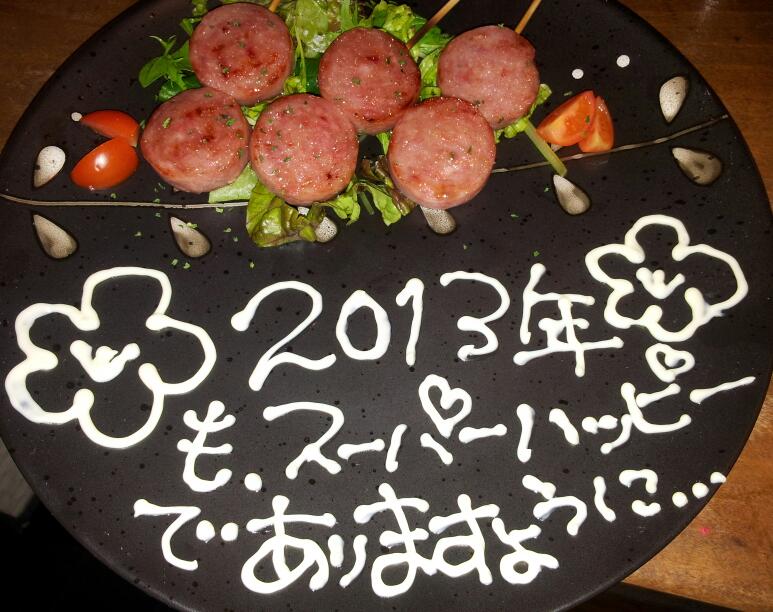 2013年
も、スーパーハッピー
でありますように…